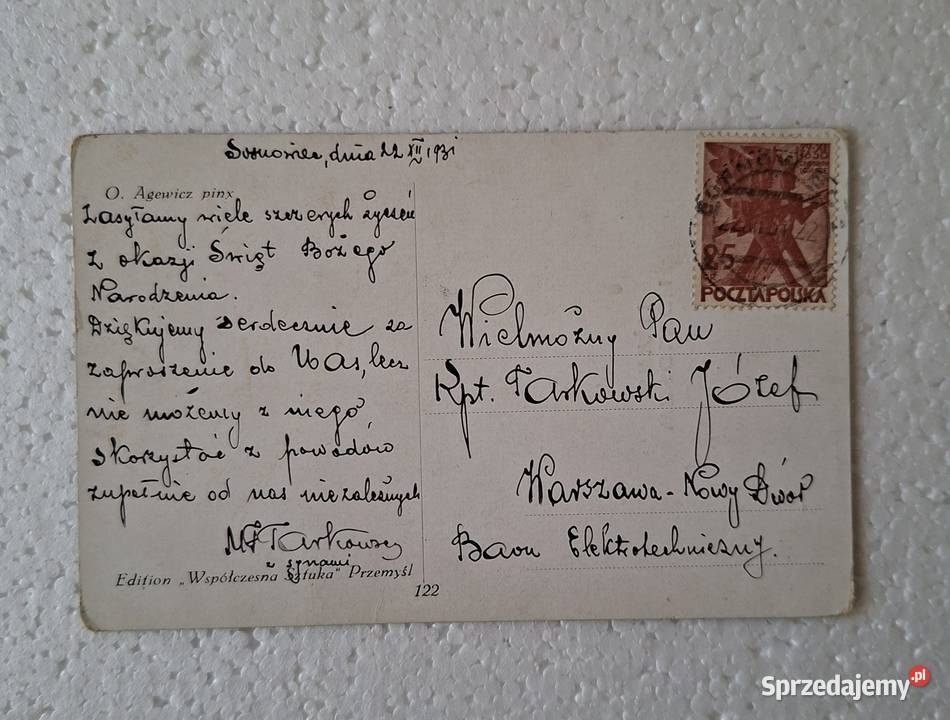 Sosnowiec, dnia 22 XII 1931
O. Agewicz pinx
Zasyłamy wiele szczerych życzeń
z okazji Świąt Bożego
Narodzenia.
Dziękujemy serdecznie za
zaproszenie do Was, lecz
nie możemy z niego
skorzystać z powodów
zupełnie od nas niezależnych
MF Tarkowscy
z synami
Edition „Współczesna Sztuka" Przemyśl
122
25
POCZTA POLSKA
Wielmożny Pan
Kpt. Tarkowski Józef
Warszawa - Nowy Dwór
Baon Elektrotechniczny.
Sprzedajemy.pl